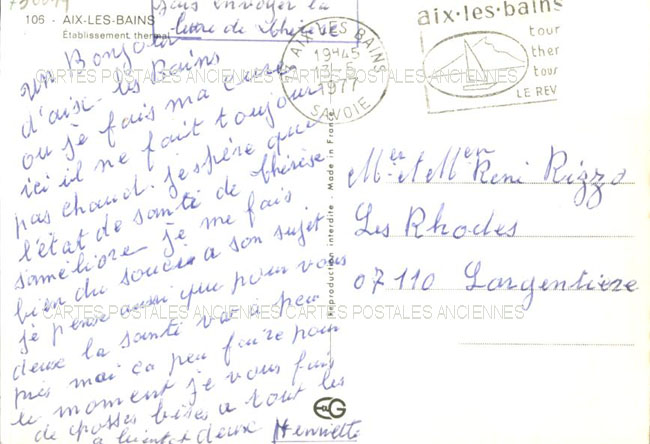 106 - AIX-LES-BAINS
Établissement thermal
sans envoyer la
lettre de Thérèse
un Bonjour
d'aix-les Bains
ou je fais ma cure
ici il ne fait toujours
pas chaud. j'espère que
l'état de santé de Thérèse
s'améliore je me fais
bien du soucis a son sujet
je pense aussi que pour vous
deux la santé va a peu
près moi ça peu faire pour
le moment je vous fais
de grosses bises a tout les
deux
Henriette
AIX LES BAINS
19H45
1977
SAVOIE
aix·les·bains
tour
ther
tour
LE REV
Reproduction interdite - Made in France
EG
Mer et Mem René Rizzo
Les Rhodes
07110 Largentieze
CARTES POSTALES ANCIENNES CARTES POSTALES ANCIENNES
CARTES POSTALES ANCIENNES CARTES POSTALES ANCIENNES